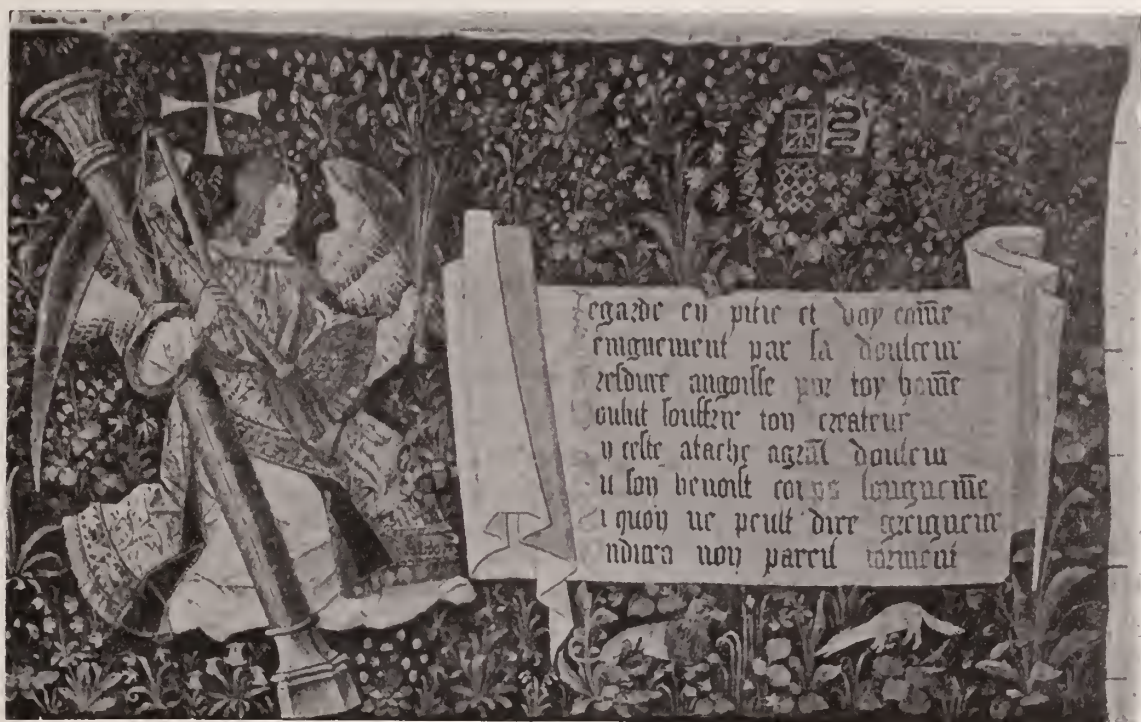 Regarde en pitie et voy com̄e
enignement par sa doulceur
resdure angoisse por toy hom̄e
oulut souffrir ton createur
n ceste atache agrāt douleur
u son benoist corps longuemēt
n quoy ne peult dire greigneur
ndura non pareil torment